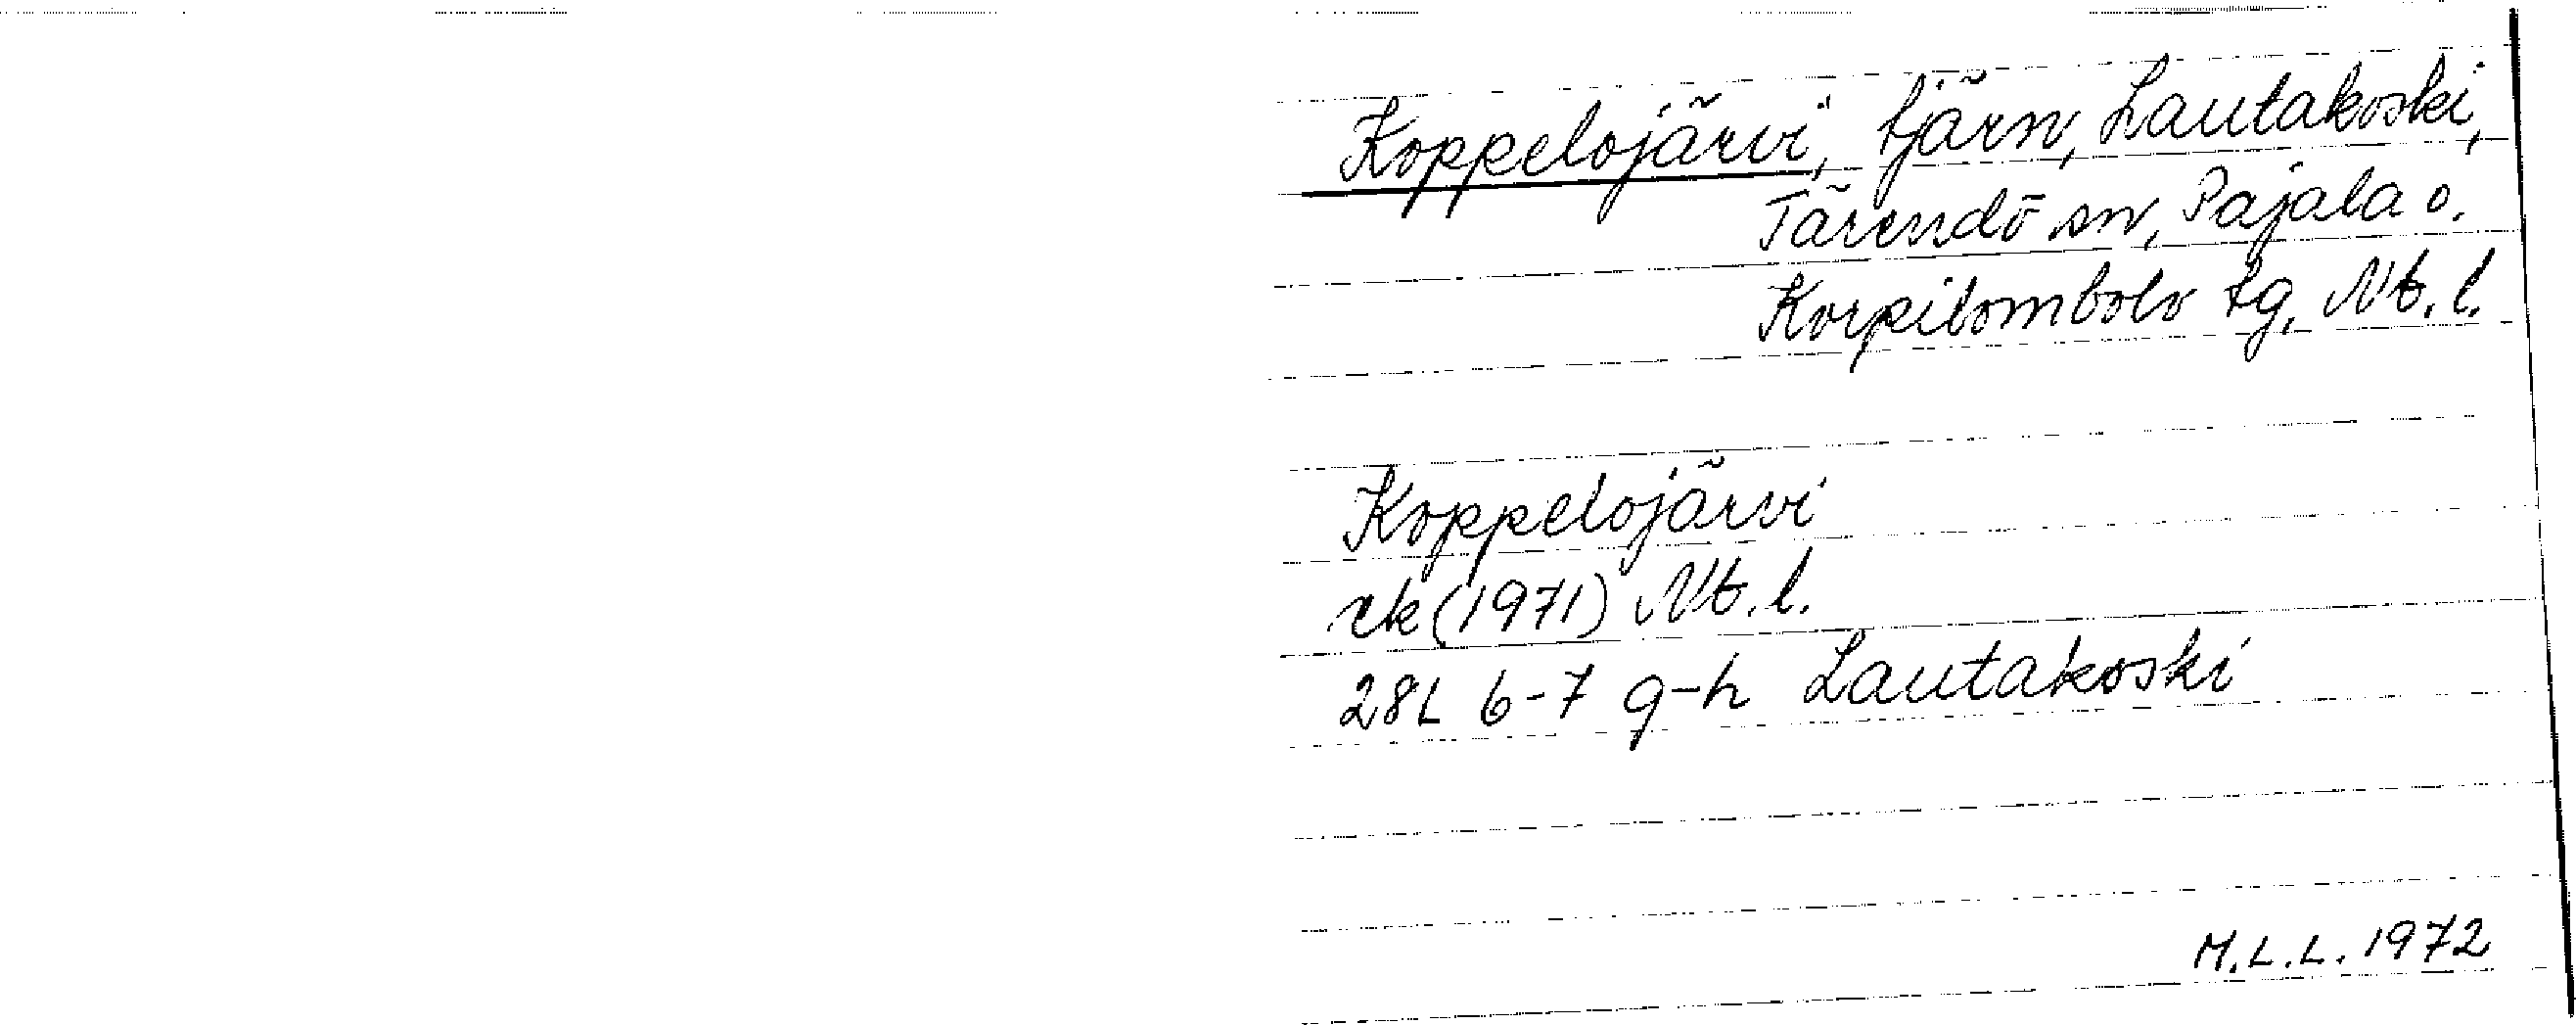 Koppelojärvi, tjärn, Lautakoski,
Tärendö sn, Pajala o.
Korpilombolo tg, Nb. l.
Koppelojärvi
rk (1971) Nb. l.
28L 6-7 g-h Lautakoski
M.L.L. 1972